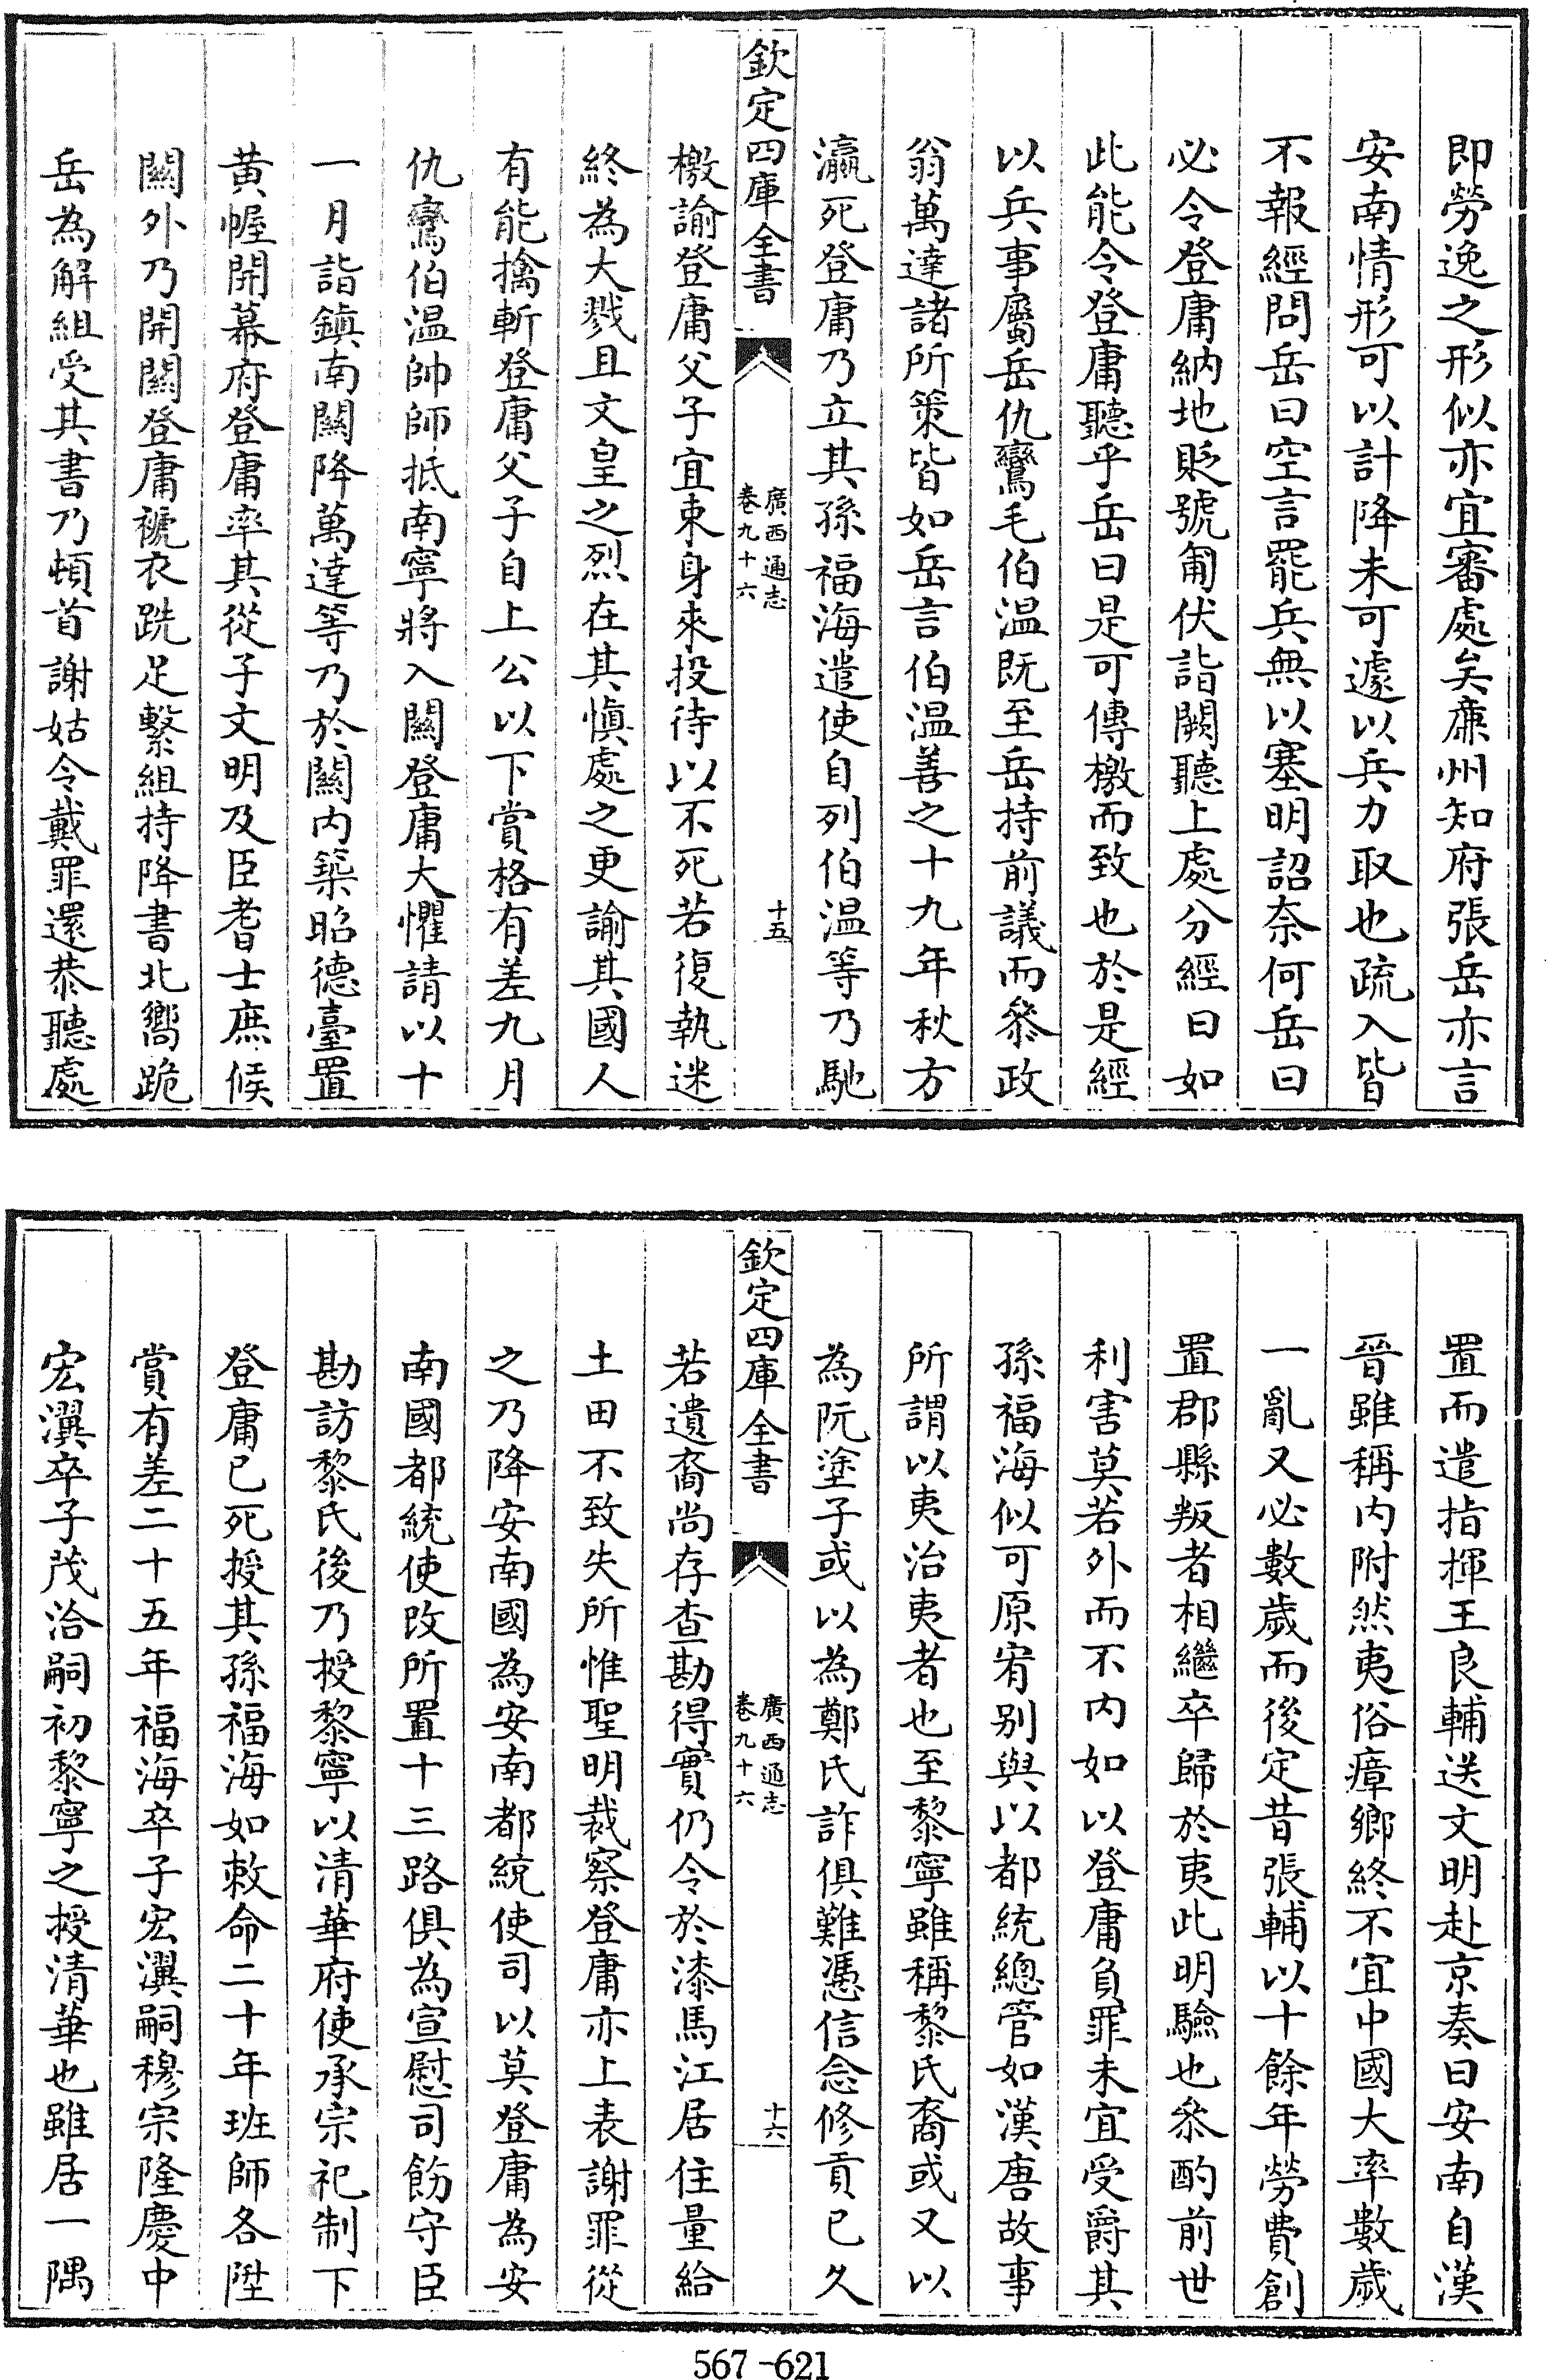 即勞逸之形似亦宜審處矣㢘州知府張岳亦言
安南情形可以計降未可遽以兵力取也疏入皆
不報經問岳曰空言罷兵無以塞明詔奈何岳曰
必令登庸納地貶號匍伏詣闕聽上處分經曰如
此能令登庸聽乎岳曰是可傳檄而致也於是經
以兵事屬岳仇鸞毛伯温既至岳持前議而叅政
翁萬達諸所策皆如岳言伯温善之十九年秋方
瀛死登庸乃立其孫福海遣使自列伯温等乃馳
欽定四庫全書
廣西通志
卷九十六
十五
檄諭登庸父子宜束身來投待以不死若復執迷
終為大戮且文皇之烈在其慎處之更諭其國人
有能擒斬登庸父子自上公以下賞格有差九月
仇鸞伯温帥師抵南寧將入關登庸大懼請以十
一月詣鎮南關降萬達等乃於關内築昭德臺置
黄幄開幕府登庸率其從子文明及臣耆士庶候
關外乃開關登庸褫衣跣足繫組持降書北嚮跪
岳為解組受其書乃頓首謝姑令戴罪還恭聽處
置而遣指揮王良輔送文明赴京奏曰安南自漢
晉雖稱内附然夷俗瘴鄉終不宜中國大率數歲
一亂又必數歲而後定昔張輔以十餘年勞費創
置郡縣叛者相繼卒歸於夷此明驗也叅酌前世
利害莫若外而不内如以登庸負罪未宜受爵其
孫福海似可原宥别與以都統總管如漢唐故事
所謂以夷治夷者也至黎寧雖稱黎氏裔或又以
為阮塗子或以為鄭氏詐俱難憑信念修貢已久
欽定四庫全書
廣西通志
卷九十六
十六
若遺裔尚存查勘得實仍令於漆馬江居住量給
土田不致失所惟聖明裁察登庸亦上表謝罪從
之乃降安南國為安南都統使司以莫登庸為安
南國都統使改所置十三路俱為宣慰司飭守臣
勘訪黎氏後乃授黎寧以清華府使承宗祀制下
登庸已死授其孫福海如敕命二十年班師各陞
賞有差二十五年福海卒子宏瀷嗣穆宗隆慶中
宏瀷卒子茂洽嗣初黎寧之授清華也雖居一隅
567-621